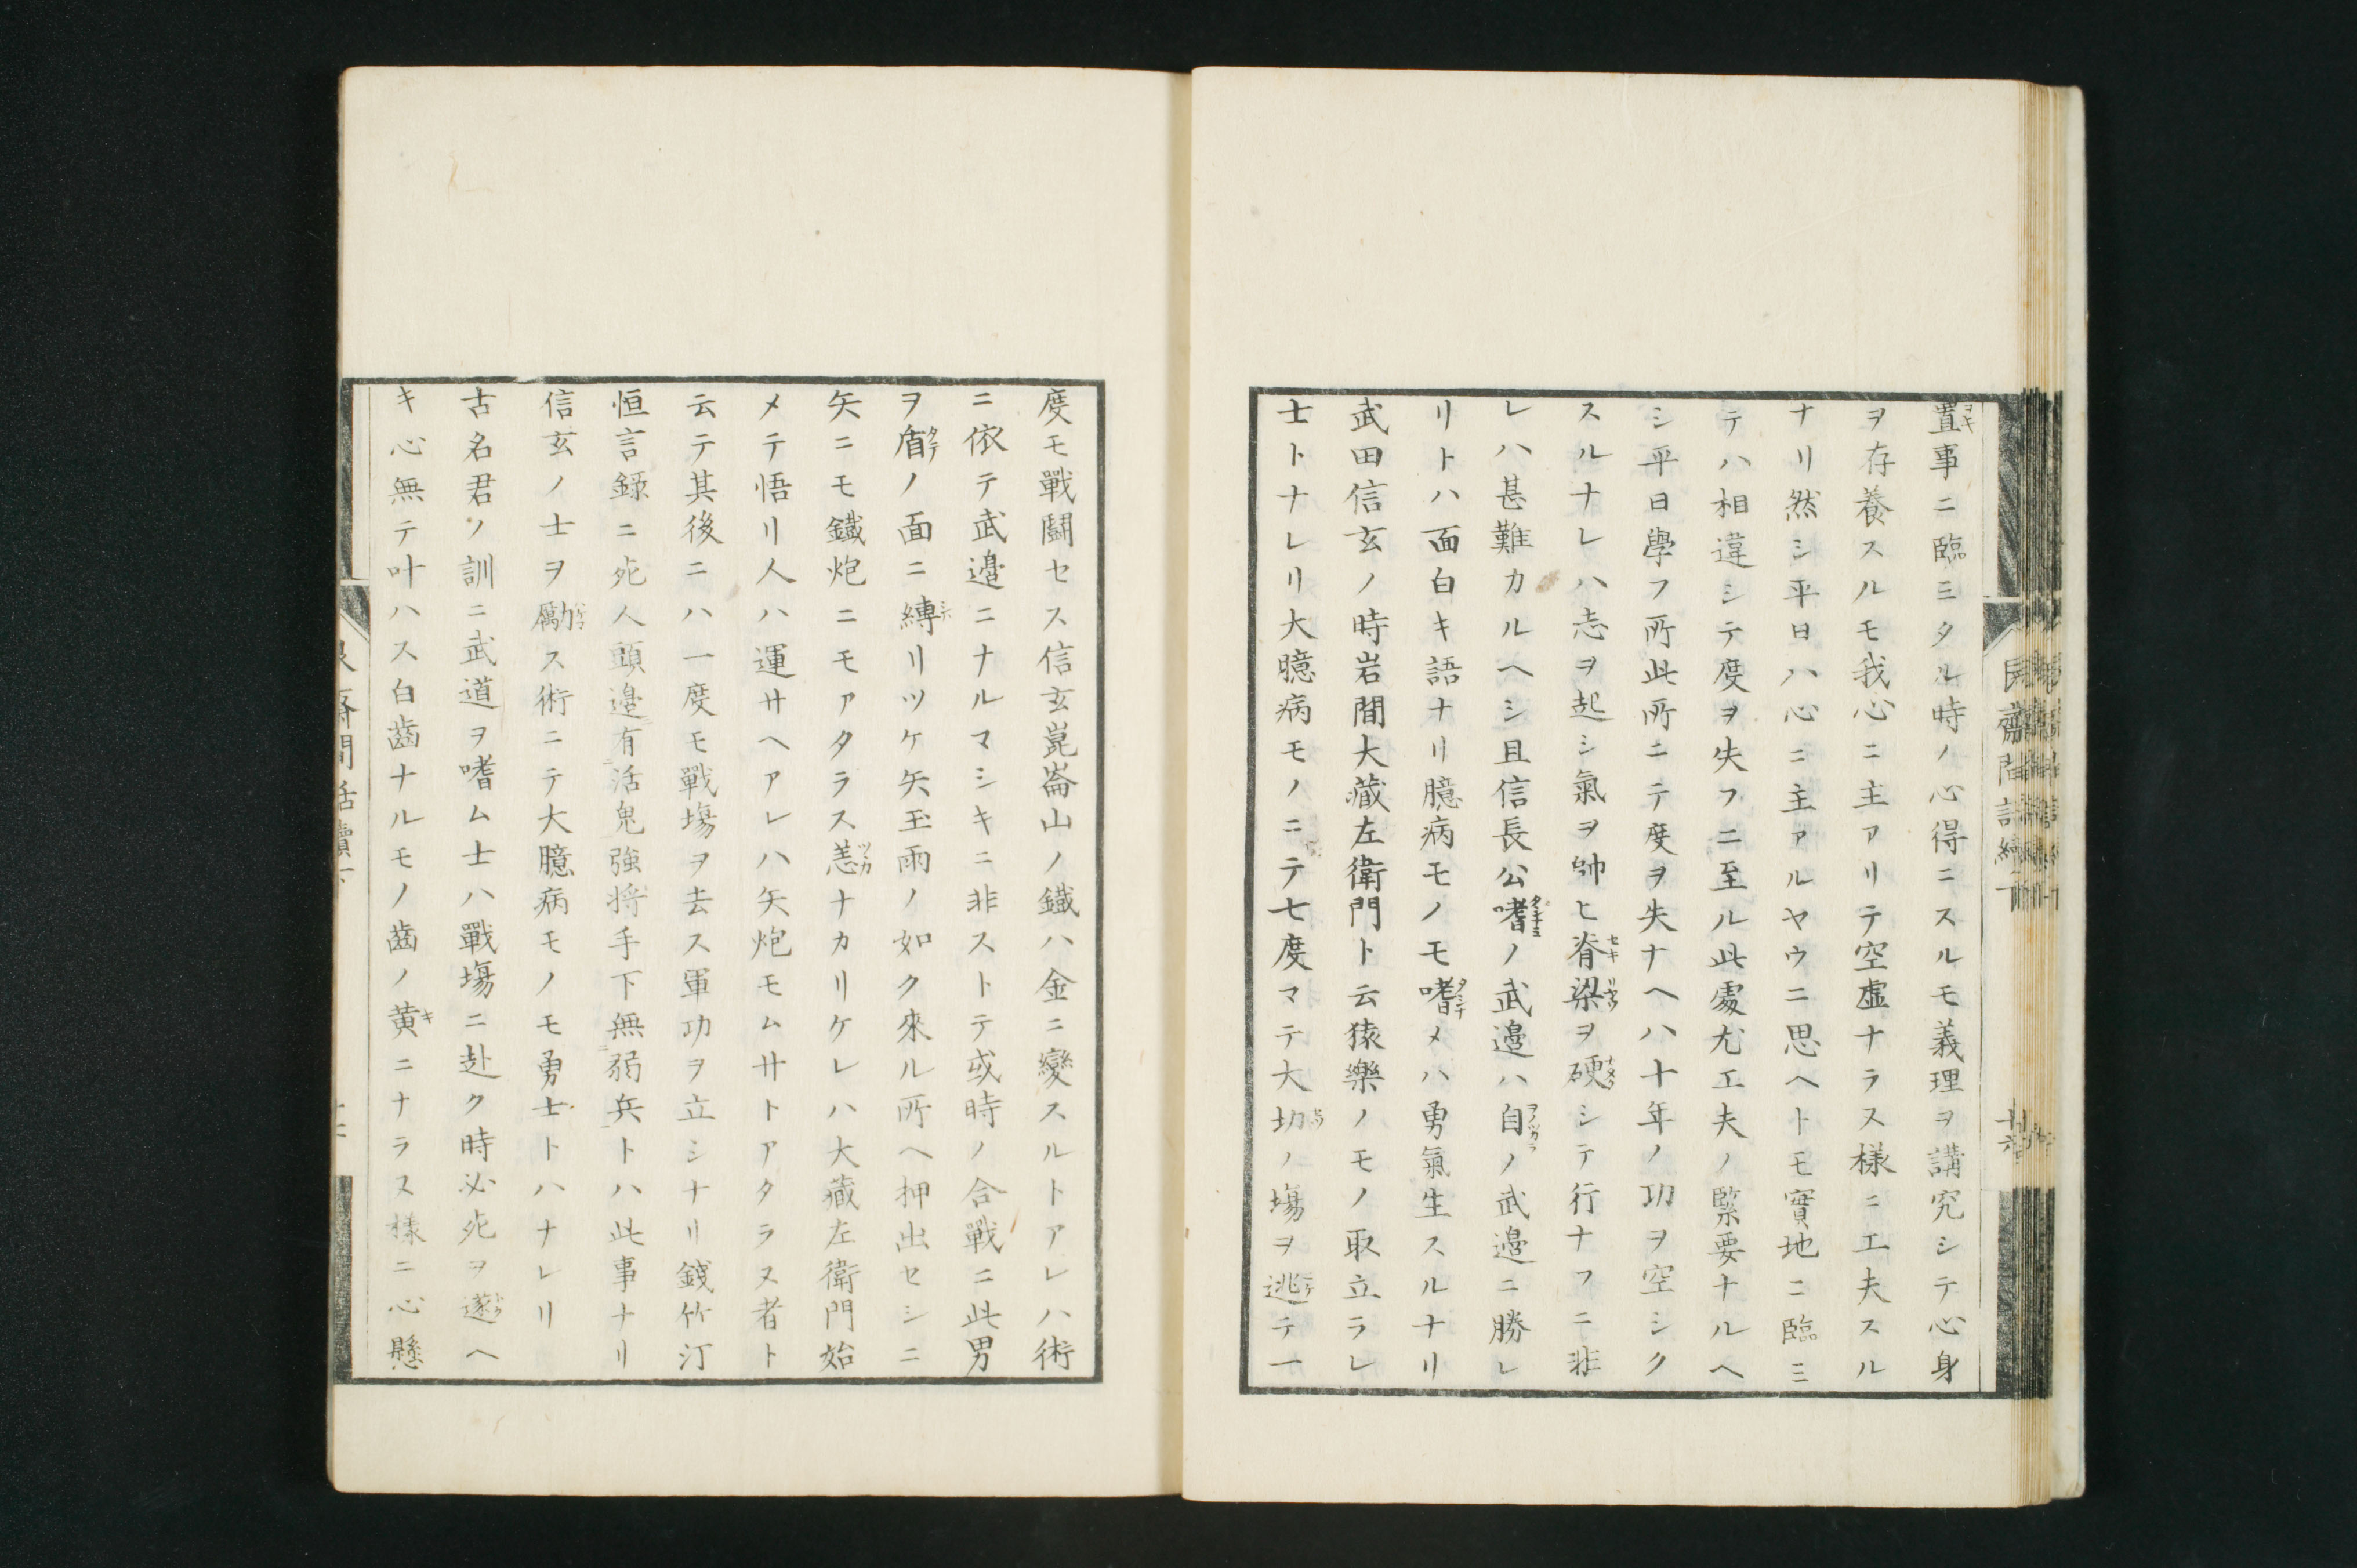 置事ニ臨ミタル時ノ心得ニスルモ義理ヲ講究シテ心身
ヲ存養スルモ我心ニ主アリテ空虚ナラス様ニ工夫スル
ナリ然シ平日ハ心ニ主アルヤウニ思ヘトモ實地ニ臨ミ
テハ相違シテ度ヲ失フニ至ル此處尤工夫ノ緊要ナルヘ
シ平日學フ所此所ニテ度ヲ失ナヘハ十年ノ功ヲ空シク
スルナレハ志ヲ起シ氣ヲ帥ヒ脊梁ヲ硬シテ行ナフニ非
レハ甚難カルヘシ且信長公嗜ノ武邉ハ自ノ武邉ニ勝レ
リトハ面白キ語ナリ臆病モノモ嗜メハ勇氣生スルナリ
武田信玄ノ時岩間大藏左衛門ト云猿樂ノモノ取立ラレ
士トナレリ大臆病モノニテ七度マテ大切ノ場ヲ逃テ一
度モ戰鬪セス信玄崑崙山ノ鐵ハ金ニ變スルトアレハ術
ニ依テ武邉ニナルマシキニ非ストテ或時ノ合戰ニ此男
ヲ盾ノ面ニ縛リツケ矢玉雨ノ如ク來ル所ヘ押出セシニ
矢ニモ鐵炮ニモアタラス恙ナカリケレハ大藏左衛門始
メテ悟リ人ハ運サヘアレハ矢炮モムサトアタラヌ者ト
云テ其後ニハ一度モ戰場ヲ去ス軍功ヲ立シナリ錢竹汀
恒言録ニ死人頭邉有活鬼強将手下無弱兵トハ此事ナリ
信玄ノ士ヲ勵ス術ニテ大臆病モノモ勇士トハナレリ
古名君ノ訓ニ武道ヲ嗜ム士ハ戰場ニ赴ク時必死ヲ遂ヘ
キ心無テ叶ハス白齒ナルモノ齒ノ黄ニナラス様ニ心懸